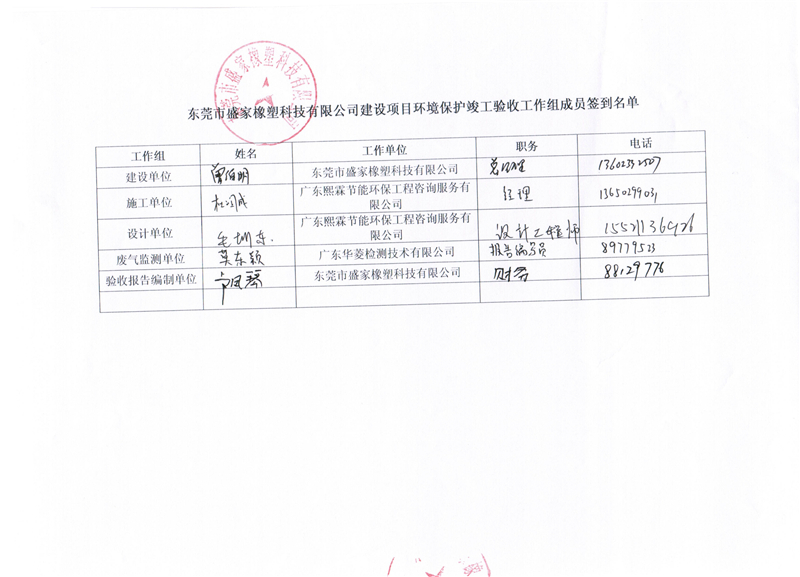 东莞市盛家橡塑科技有限公司建设项目环境保护竣工验收工作组成员签到名单
工作组 姓名 工作单位 职务 电话
建设单位 曾伯明 东莞市盛家橡塑科技有限公司 总经理
施工单位 广东熙霖节能环保工程咨询服务有限公司 经理 13650299031
设计单位 广东熙霖节能环保工程咨询服务有限公司 设计工程师
废气监测单位 莫东颖 广东华菱检测技术有限公司 报告编写员 89779523
验收报告编制单位 东莞市盛家橡塑科技有限公司 财务 88129776